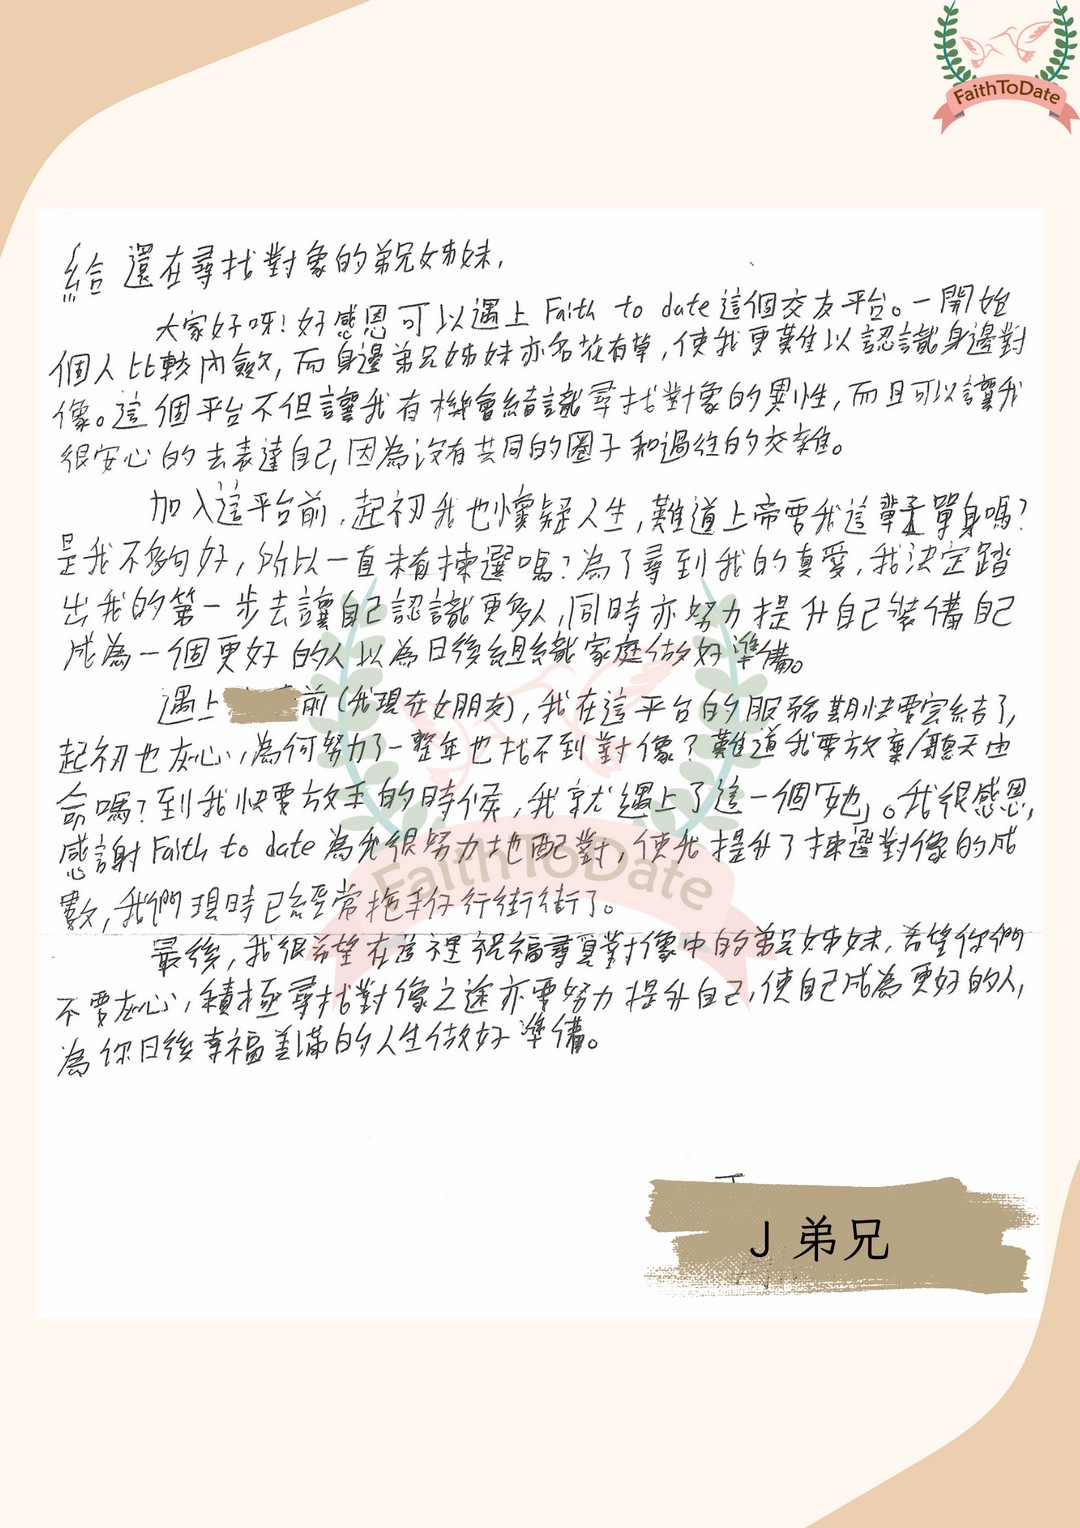 FaithToDate
給 還在尋找對象的弟兄姊妹,
大家好呀!好感恩可以遇上 Faith to date 這個交友平台。一開始
個人比較內斂,而身邊弟兄姊妹亦名花有草,使我更難以認識身邊對
像。這個平台不但讓我有機會結識尋找對象的異性,而且可以讓我
很安心的去表達自己,因為沒有共同的圈子和過往的交雜。
加入這平台前,起初我也懷疑人生,難道上帝要我這輩子單身嗎?
是我不夠好,所以一直未有揀選嗎?為了尋到我的真愛,我決定踏
出我的第一步去讓自己認識更多人,同時亦努力提升自己裝備自己
成為一個更好的人以為日後組織家庭做好準備。
遇上 前(我現在女朋友),我在這平台的服務期快要完結了,
起初也灰心,為何努力了一整年也找不到對像?難道我要放棄/聽天由
命嗎?到我快要放手的時候,我就遇上了這一個「她」。我很感恩,
感謝 Faith to date 為我很努力地配對,使我提升了揀選對像的成
數,我們現時已經常拖手仔行街街了。
FaithToDate
最後,我很希望在這裡祝福尋覓對像中的弟兄姊妹,希望你們
不要灰心,積極尋找對像之途亦要努力提升自己,使自己成為更好的人,
為你日後幸福美滿的人生做好準備。
J 弟兄